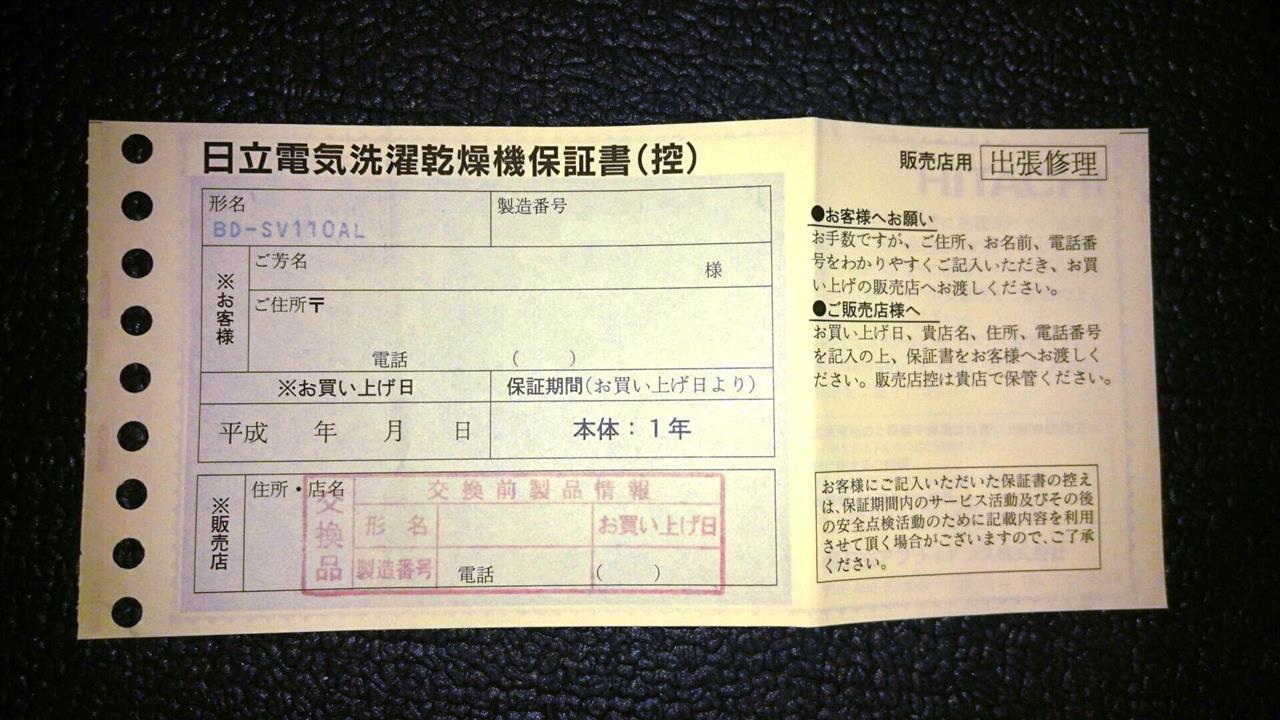 日立電気洗濯乾燥機保証書(控)
販売店用 出張修理
形名
BD-SV110AL
製造番号
※お客様
ご芳名
様
ご住所〒
電話 ( )
※お買い上げ日
保証期間(お買い上げ日より)
平成 年 月 日
本体:1年
※販売店
住所・店名
電話 ( )
交換品
交換前製品情報
形名
お買い上げ日
製造番号
●お客様へお願い
お手数ですが、ご住所、お名前、電話番
号をわかりやすくご記入いただき、お買
い上げの販売店へお渡しください。
●ご販売店様へ
お買い上げ日、貴店名、住所、電話番号
を記入の上、保証書をお客様へお渡しく
ださい。販売店控は貴店で保管ください。
お客様にご記入いただいた保証書の控え
は、保証期間内のサービス活動及びその後
の安全点検活動のために記載内容を利用
させて頂く場合がございますので、ご了承
ください。